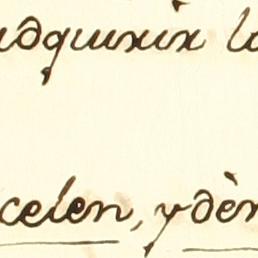 adquirir la
celen, y dèn